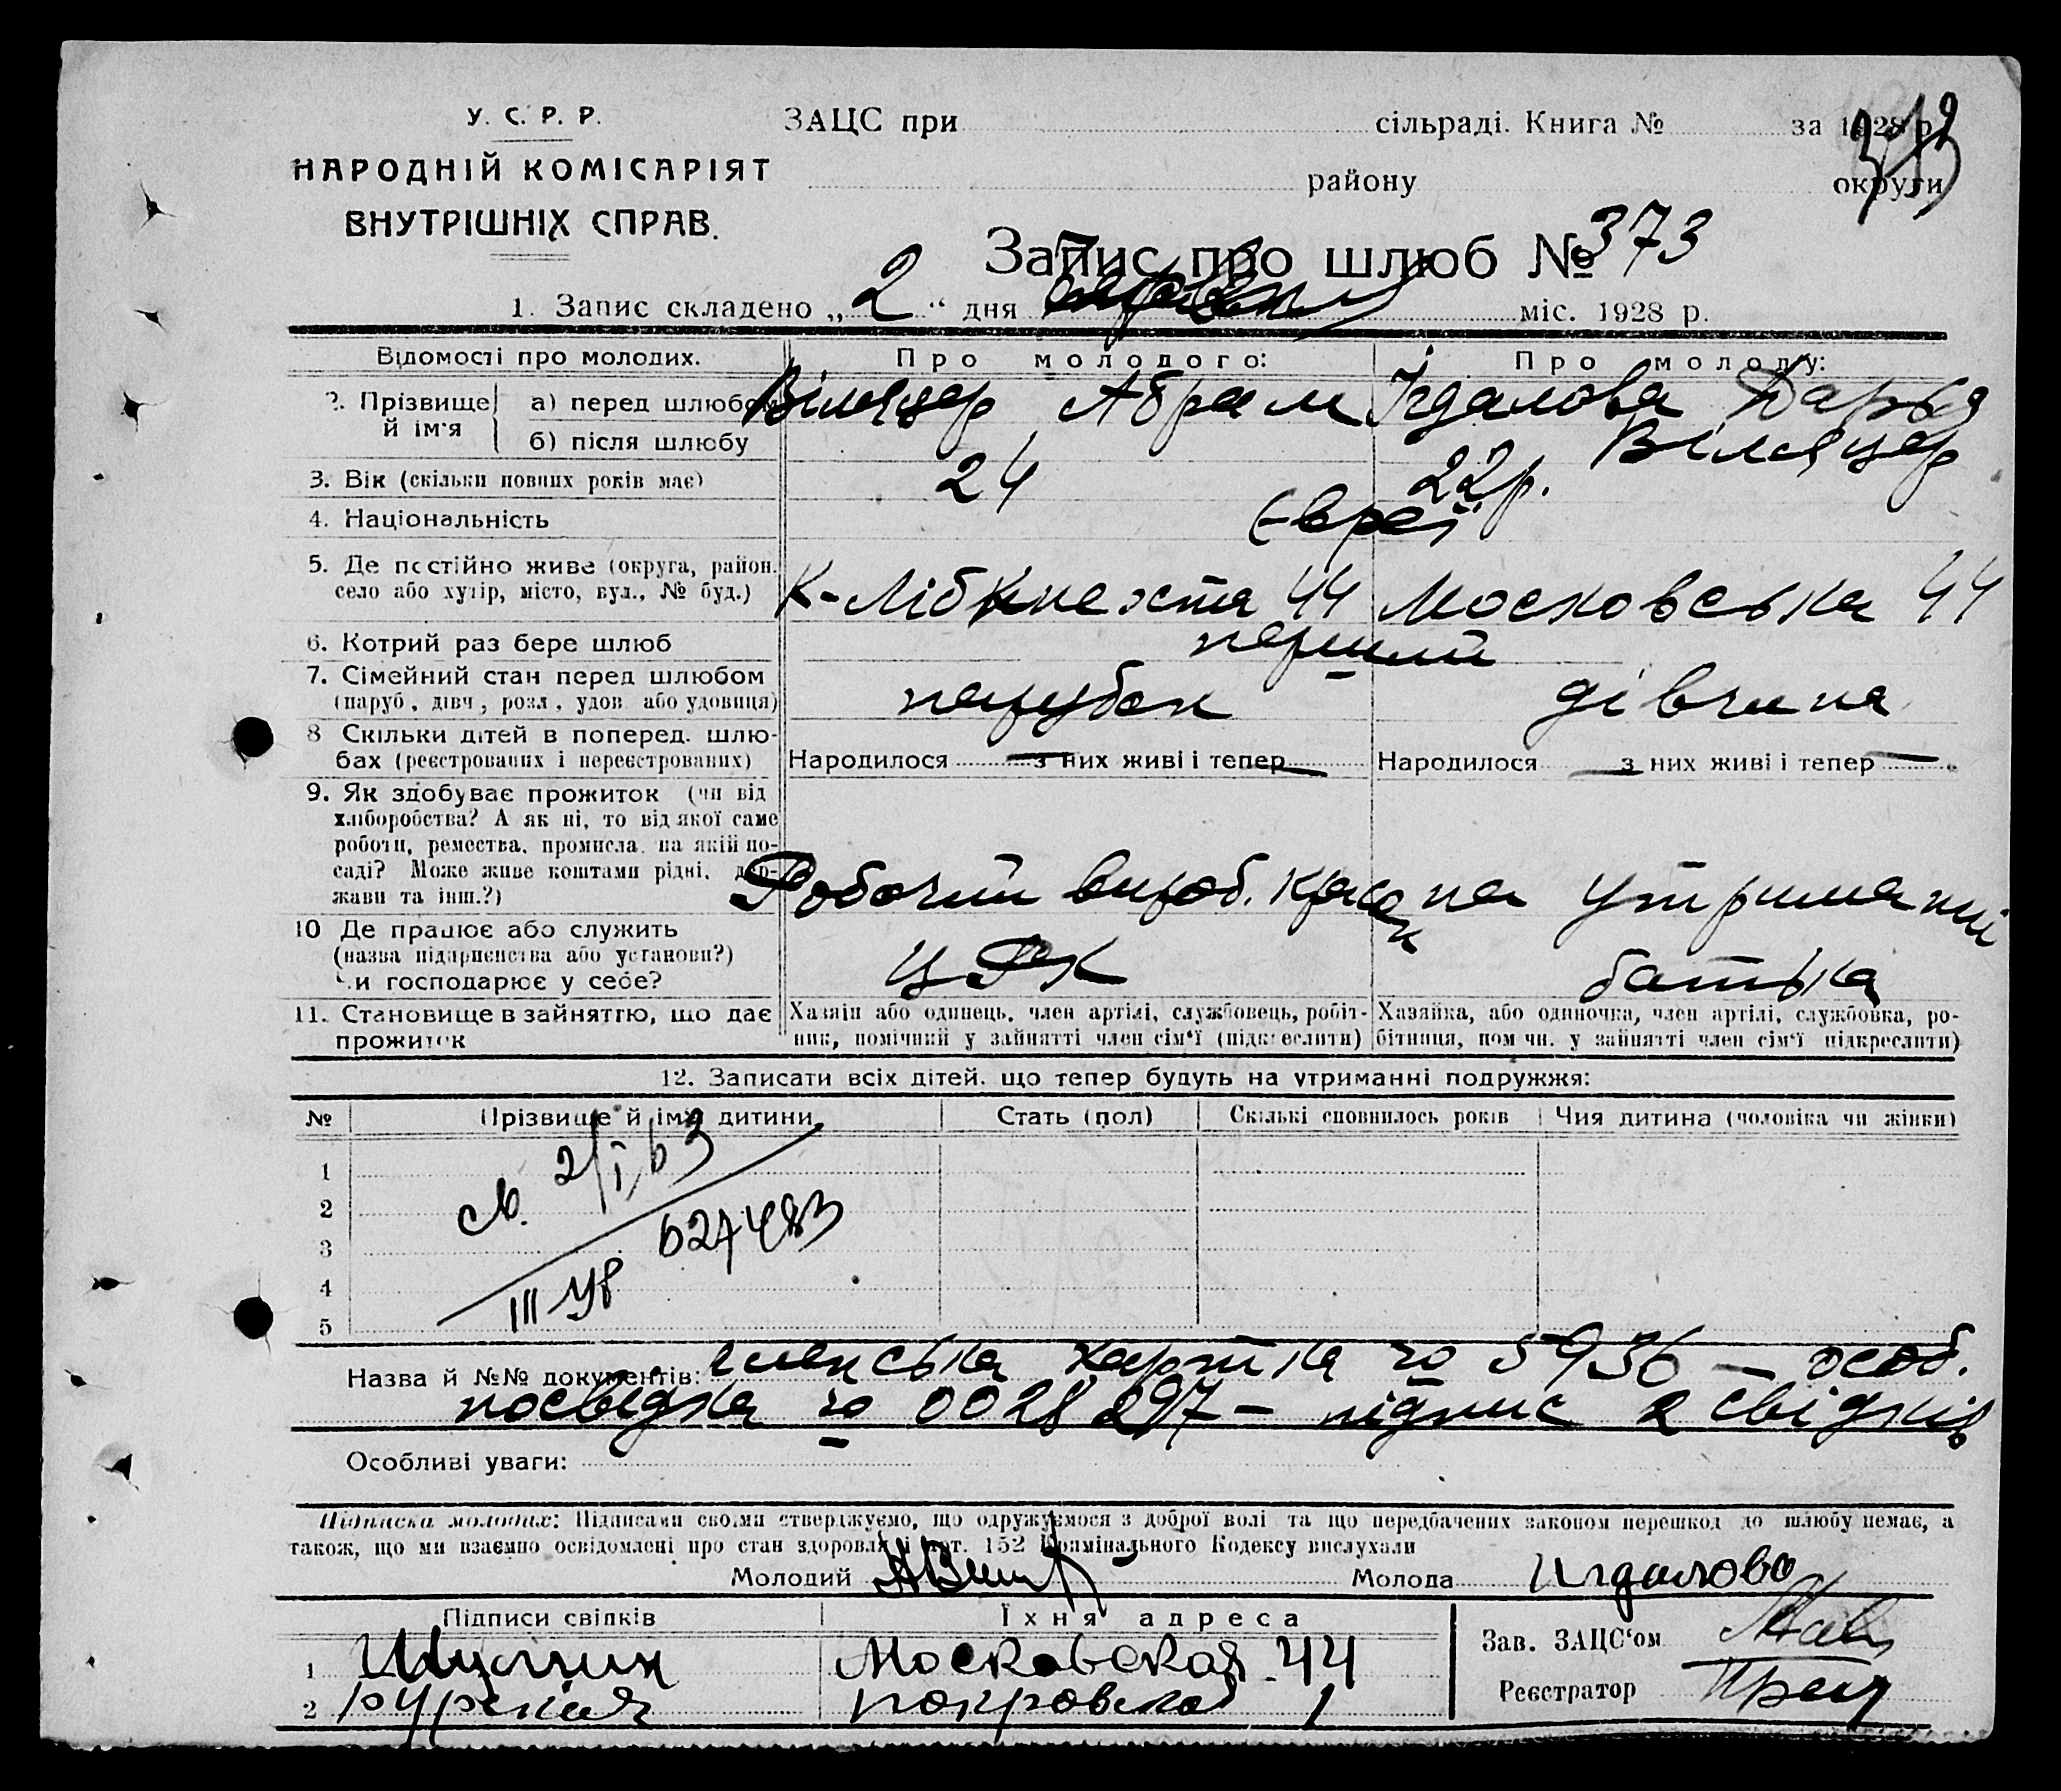 У. С. Р. Р.
НАРОДНІЙ КОМІСАРІЯТ
ВНУТРІШНІХ СПРАВ.
ЗАЦС при сільраді. Книга № за 1928 р.
району округи
Запис про шлюб № 373
1. Запис складено „ 2 “ дня міс. 1928 р.
Відомості про молодих. Про молодого: Про молоду:
2. Прізвище й ім'я
а) перед шлюбом Абрам Ігдалова Дарья
б) після шлюбу
3. Вік (скільки повних років має) 24 22р.
4. Національність Євреї
5. Де постійно живе (округа, район, село або хутір, місто, вул., № буд.) К-Лібкнехта 44 Московська 44
6. Котрий раз бере шлюб перший
7. Сімейний стан перед шлюбом парубок дівчина
(паруб., дівч., розл., удов. або удовиця)
8 Скільки дітей в поперед. шлюбах (реєстрованих і нереєстрованих) Народилося — з них живі і тепер — Народилося — з них живі і тепер —
9. Як здобуває прожиток (чи від
хліборобства? А як ні, то від якої саме
роботи, ремества, промисла, на якій посаді? Може живе коштами рідні, держави та інш.?) Робочий вироб. на утриманні
10 Де працює або служить ЦРК батька
(назва підприємства або установи?)
Чи господарює у себе?
11. Становище в зайняттю, що дає прожиток
Хазяін або одинець, член артілі, службовець, робітник, помічний у зайнятті член сім'ї (підкреслити)
Хазяйка, або одиночка, член артілі, службовка, робітниця, пом чн. у зайнятті член сім'ї підкреслити)
12. Записати всіх дітей, що тепер будуть на утриманні подружжя:
№ Прізвище й ім'я дитини Стать (пол) Скількі сповнилось років Чия дитина (чоловіка чи жінки)
1
2
3
4
5
627483
Назва й №№ документів: членська картка № 5936 — особ.
посвідка № 0028297 — підпис 2 свідків
Особливі уваги:
Підписка молодих: Підписами своїми стверджуємо, що одружуємося з доброї волі та що передбачених законом перешкод до шлюбу немає, а
також, що ми взаємно освідомлені про стан здоровля і арт. 152 Крамінального Кодексу вислухали
Молодий Молода Игдалова
Підписи свідків Їхня адреса
Зав. ЗАЦС'ом
1 Московская 44
Реєстратор
2 1